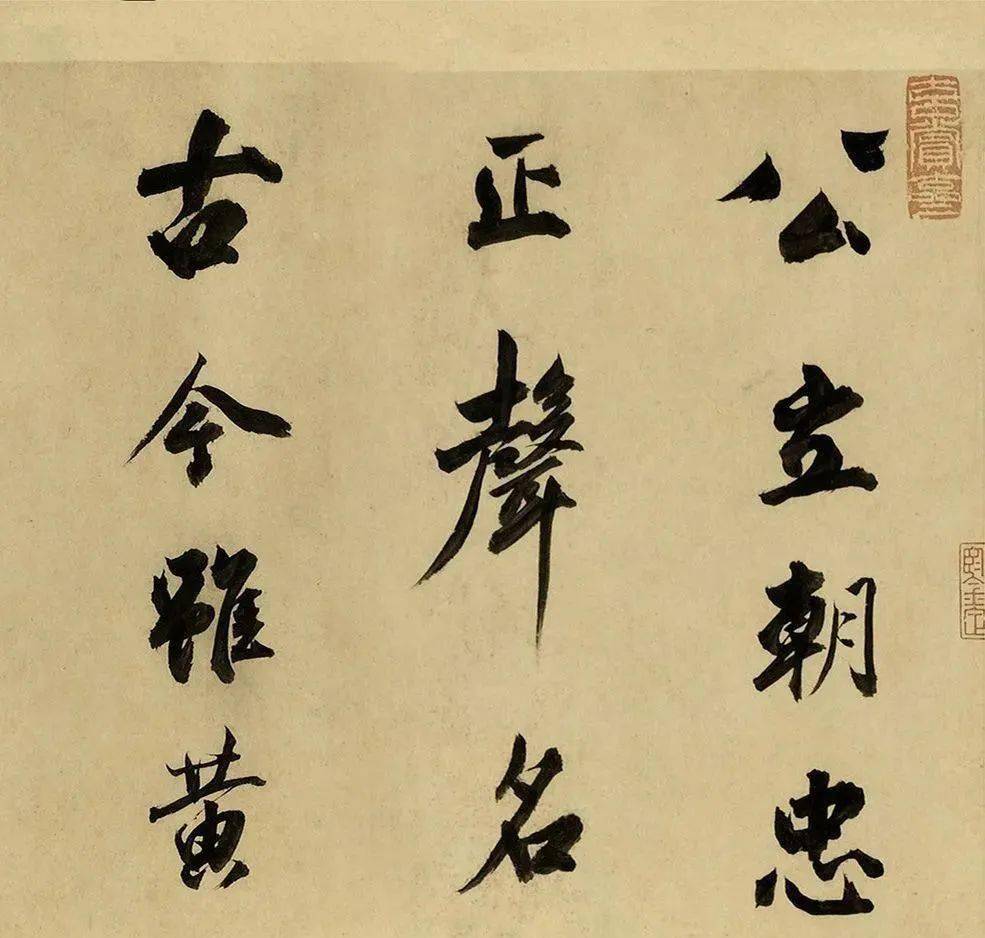 公立朝忠
正聲名
古今雖黃